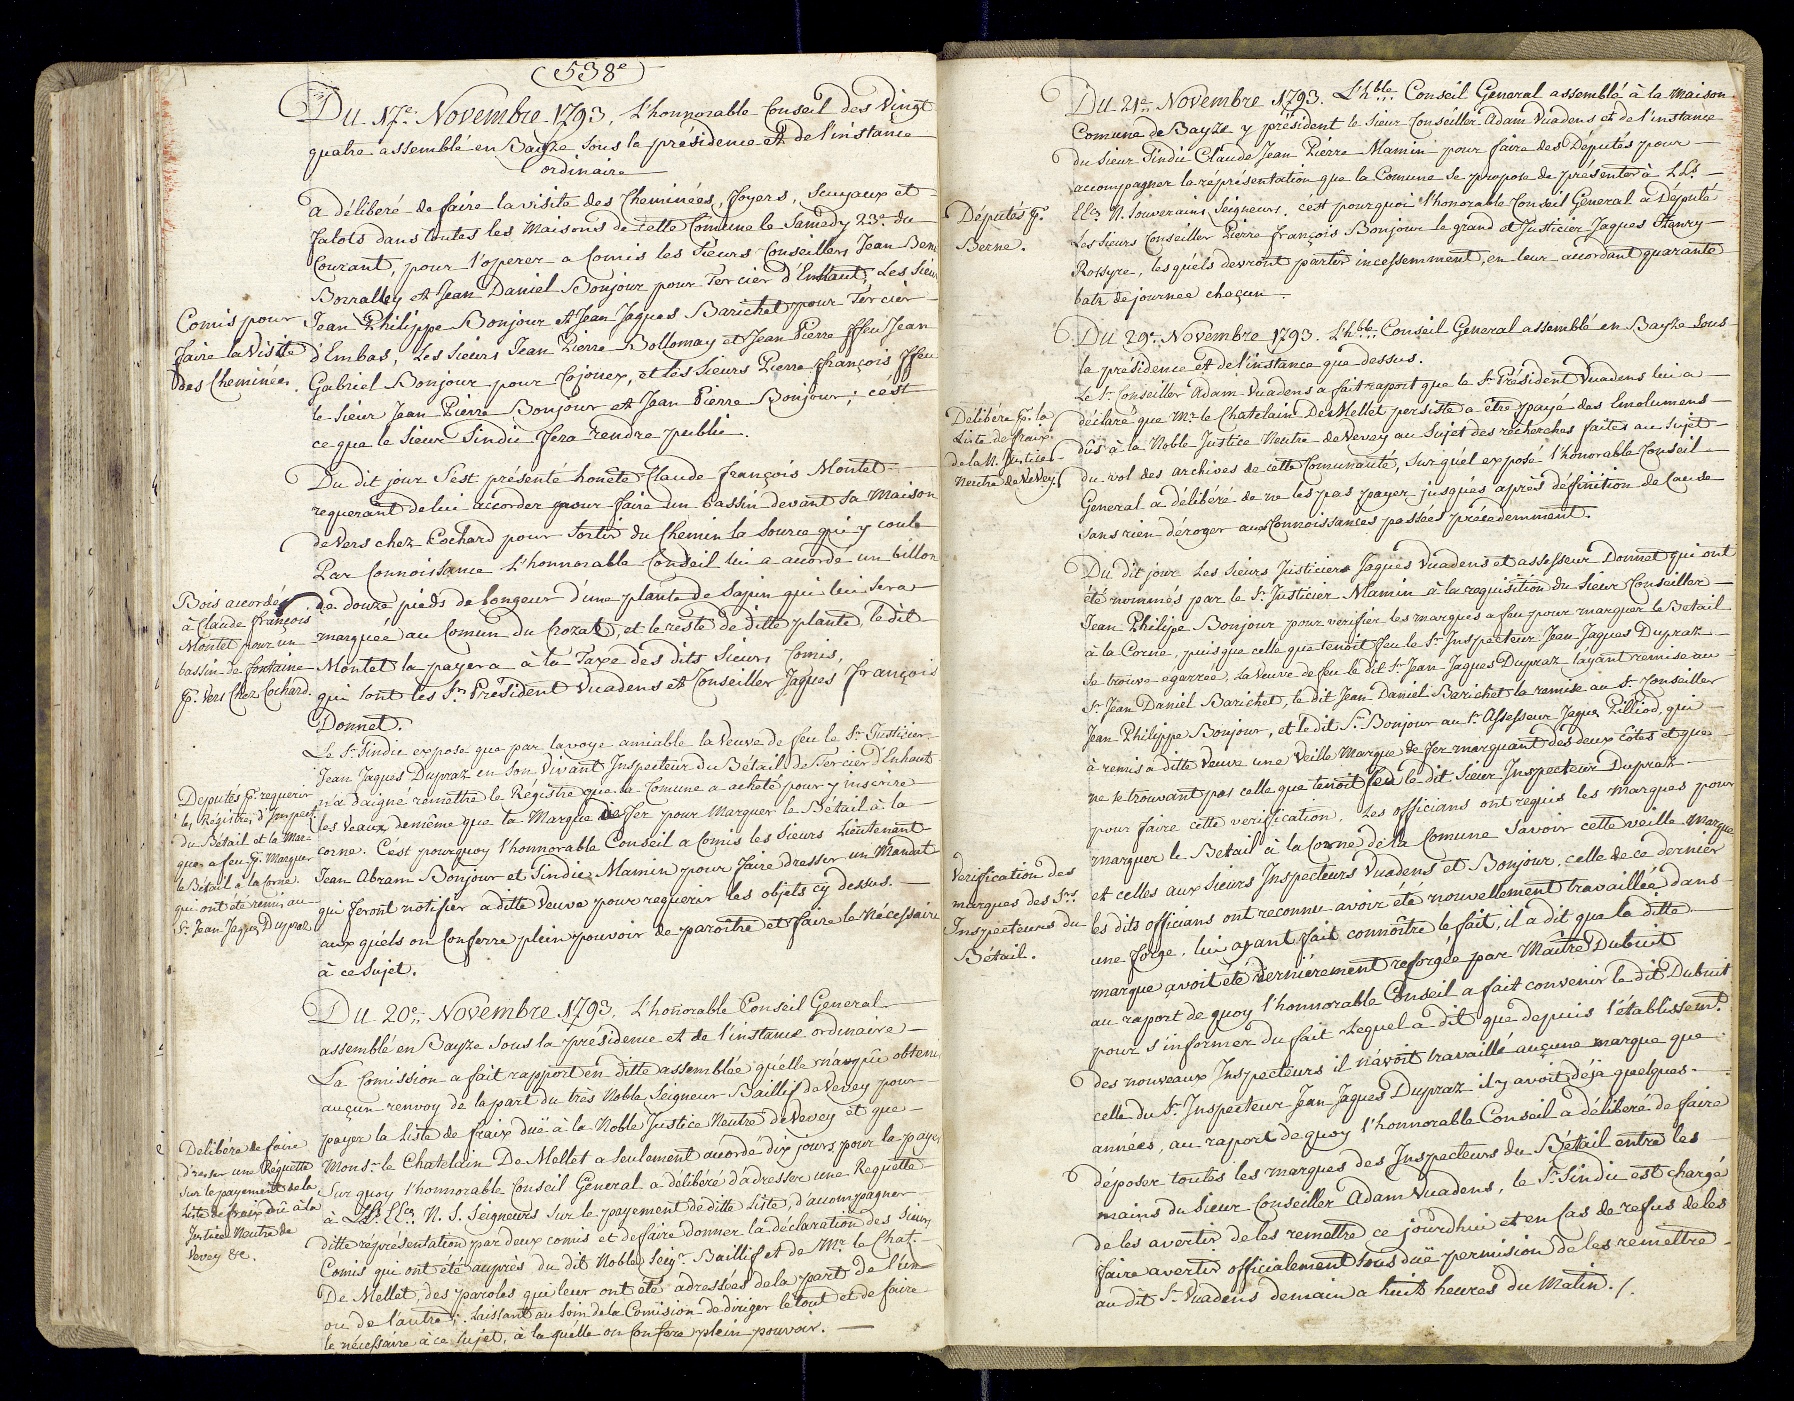 (538e)
Du 17e. Novembre 1793, L'honnorable Conseil des Vingt
quatre assemblé en Bayze sous la présidence et de l'instance
ordinaire
a déliberé de faire la visite des Cheminées, foyers, Scuyaux et
falots dans toutes les Maisons de cette Comune le Samedy 23e. du
Courant, pour l'operer a Comis les Sieurs Conseillers Jean Bene
Borralley et Jean Daniel Bonjour pour Tercier d'Enhaut, Les Sieurs
Comis pour
faire la Visite
des Cheminées.
Jean Philippe Bonjour et Jean Jaques Barichet pour Tercier
d'Embas, Les Sieurs Jean Pierre Bollomay et Jean Pierre ffeu Jean
Gabriel Bonjour pour Cojonex, et les Sieurs Pierre françois ffeu
le Sieur Jean Pierre Bonjour et Jean Pierre Bonjour; c'est
ce que le Sieur Sindic fera rendre public.
Du dit jour S'est présenté honête Claude François Montet
requerant de lui accorder pour faire un bassin devant Sa Maison
devers chez Cochard pour Sortir du Chemin la Source qui y coule
Par Connoissance L'honnorable Conseil lui a accordé un billon
Bois accordé
à Claude françois
Montet pour un
bassin de fontaine
pr. Vers Chez Cochard.
de douze pieds de longeur d'une plante de Sapin qui lui sera
marquée au Comun du Crozat, et le reste de ditte plante, le dit
Montet la payera à la Taxe des dits Sieurs Comis,
qui sont les Srs Président Vuadens et Conseiller Jaques François
Donnet.
Le Sr. Sindic expose que par la voye amiable la Veuve de feu le Sr. Justicier
Jean Jaques Dupraz en Son Vivant Inspecteur du Bétail de Tercier d'Enhaut
Deputés pr. requerir
les Régistres d'Inspect.
du Bétail et la Mar=
que a feu pr. Marquer
le Bétail à la Corne.
qui ont été remis au
Sr. Jean Jaques Dupraz
n'a daigné remettre le Régistre que la Comune a acheté pour y inscrire
les Veaux demême que la Marque de fer pour Marquer le Bétail à la
corne. C'est pourquoy l'honnorable Conseil a Comis les Sieurs Lieutenant
Jean Abram Bonjour et Sindic Mamin pour faire dresser un Mandat
qui feront notifier a ditte Veuve pour requerir les objets cy dessus.
aux quéls on Conferre plein pouvoir de paroître et faire le Nécessaire
à ce Sujet.
Du 20e. Novembre 1793, L'honorable Conseil General
assemblé en Bayze Sous la présidence et de l'instance ordinaire
La Comission a fait rapport en ditte assemblée qu'élle n'a pû obtenir
auçun renvoy de la part du très Noble Seigneur Baillif de Vevey pour
payer la Liste de fraix düe à la Noble Justice Neutre de Vevey et que
Monsr. le Chatelain De Mellet a Seulement accordé dix jours pour la payer
Delibéré de faire
dresser une Réquette
Sur le payement de la
Liste de fraix dûe à la
Justice Neutre de
Vevey &c.
Sur quoy l'honnorable Conseil General a déliberé d'adresser une Requette
à LL. EEces. N. S. Seigneurs Sur le payement de ditte Liste, d'accompagner
ditte représentation par deux comis et de faire donner la déclaration des Sieurs
Comis qui ont été auprès du dit Noble Seigr. Baillif et de Mr. le Chat.
De Mellet, des paroles qui leur ont été adressées de la part de l'un
ou de l'autre; Laissant au Soin de la Comission de diriger le tout et de faire
le nécessaire à ce Sujet, à laquélle on Confere plein pouvoir.
Du 21e. Novembre 1793. L'hble. Conseil General assemblé à la Maison
Comune de Bayze y président le Sieur Conseiller Adam Vuadens et de l'instance
du Sieur Sindic Claude Jean Pierre Mamin pour faire des Députés pour
accompagner la réprésentation que la Comune Se propose de présenter à LLs.
Députés pr.
Berne.
EEces. N. Souverains Seigneurs. c'est pourquoi l'honorable Conseil General a Député
Les Sieurs Conseiller Pierre François Bonjour le grand et Justicier Jaques Henry
Rossyre, lesquéls devront partir incessemment, en leur accordant quarante
batz de journée chaçun.
Du 29e. Novembre 1793. L'hble. Conseil General assemblé en Bayze Sous
la présidence et de l'instance que dessus.
Le Sr. Conseiller Adam Vuadens a fait raport que le Sr. Président Vuadens lui a
Délibéré pr. la
Liste de fraix
de la N. Justice
Neutre de Vevey.
déclaré que Mr. le Chatelain De Mellet persiste a être payé des Emolumens
dûs à la Noble Justice Neutre de Vevey au Sujet des recherches faites au Sujet
du vol des archives de cette Comunauté, Sur quél exposé l'honorable Conseil
General a délibéré de ne les pas payer jusqu'es après définition de Cause
Sans rien déroger aux Connoissances passées précedemment.
Du dit jour Les Sieurs Justiciers Jaques Vuadens et assesseur Donnet qui ont
été nommés par le Sr. Justicier Mamin à la requisition du Sieur Conseiller
Jean Philipe Bonjour pour vérifier les marques a feu pour marquer le Bétail
à la Corne, puisque celle que tenoit feu le Sr. Inspecteur Jean Jaques Dupraz
Se trouve égarrée, la Veuve de feu le dit Sr. Jean Jaques Dupraz l'ayant remise au
Sr. Jean Daniel Barichet, le dit Jean Daniel Barichet la remise au Sr. Conseiller
Jean Philippe Bonjour, et le dit Sr. Bonjour au Sr. Assesseur Jaques Pilliod, qui
à remis a ditte Veuve une Veille Marque de Fer marquant des deux côtes et que
ne Se trouvant pas celle que tenoit feu le dit Sieur Inspecteur Dupraz
pour faire cette verification, Les officians ont requis les Marques pour
marquer le Bétail à la Corne de la Comune Savoir cette veille Marque
Verification des
marques des Srs.
Inspecteurs du
Bétail.
et celles aux Sieurs Inspecteurs Vuadens et Bonjour, celle de ce dernier
les dits officians ont reconnu avoir été nouvellement travaillée dans
une forge, lui ayant fait connôitre le fait, il a dit que la ditte
marque avoit été dernièrement reforgée par Maître Dubuit
au raport de quoy l'honnorable Conseil a fait convenir le dit Dubuit
pour s'informer du fait Lequel a dit que depuis l'établissemt.
des nouveaux Inspecteurs il n'avoit travaillé auçune marque que
celle du Sr. Inspecteur Jean Jaques Dupraz il y avoit déja quelques
années, au raport de quoy l'honnorable Conseil a déliberé de faire
déposer toutes les marques des Inspecteurs du Bétail entre les
mains du Sieur Conseiller Adam Vuadens, le Sr. Sindic est chargé
de les avertir de les remettre ce jourdhui et en Cas de refus de les
faire avertir officialement Sous düe permision de les remettre
au dit Sr. Vuadens demain a huit heures du Matin./.